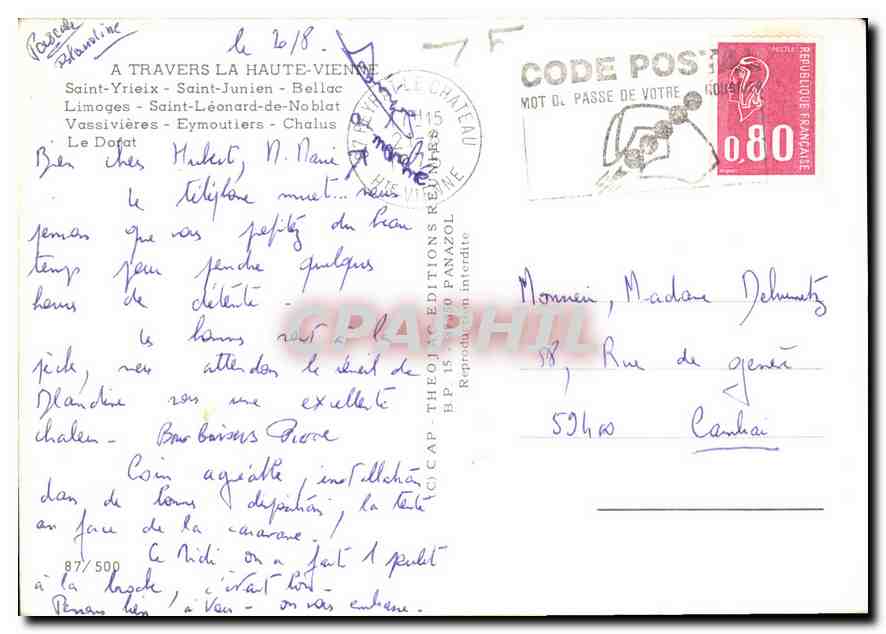 Pascale
Blandine
le 20/8.
A TRAVERS LA HAUTE-VIENNE
Saint-Yrieix - Saint-Junien - Bellac
Limoges - Saint-Léonard-de-Noblat
Vassivières - Eymoutiers - Chalus
Le Dorat
Bien chers Hubert, M. Marie
Le téléphone muet... nous
pensons que vous profitez du beau
temps pour prendre quelques
heures de détente -
Les hommes sont à la
pêche, nous attendons le réveil de
Blandine sous une excellente
chaleur - Bons baisers Pierre
Coin agréable, installation
dans de bonnes dispositions, la tente
en face de la caravane !
Ce midi on a fait 1 poulet
à la broche, c'était bon -
Pensons bien à vous - on vous embrasse -
87/500
(C) CAP - THEOJAC EDITIONS REUNIES
B.P. 15 - PANAZOL
Reproduction interdite
87 PEYRAT-LE-CHATEAU
HTE VIENNE
CODE POSTAL
MOT DE PASSE DE VOTRE
POSTES
REPUBLIQUE FRANÇAISE
0,80
CPAPHIL
Monsieur, Madame
58, Rue de
59400 Cambrai